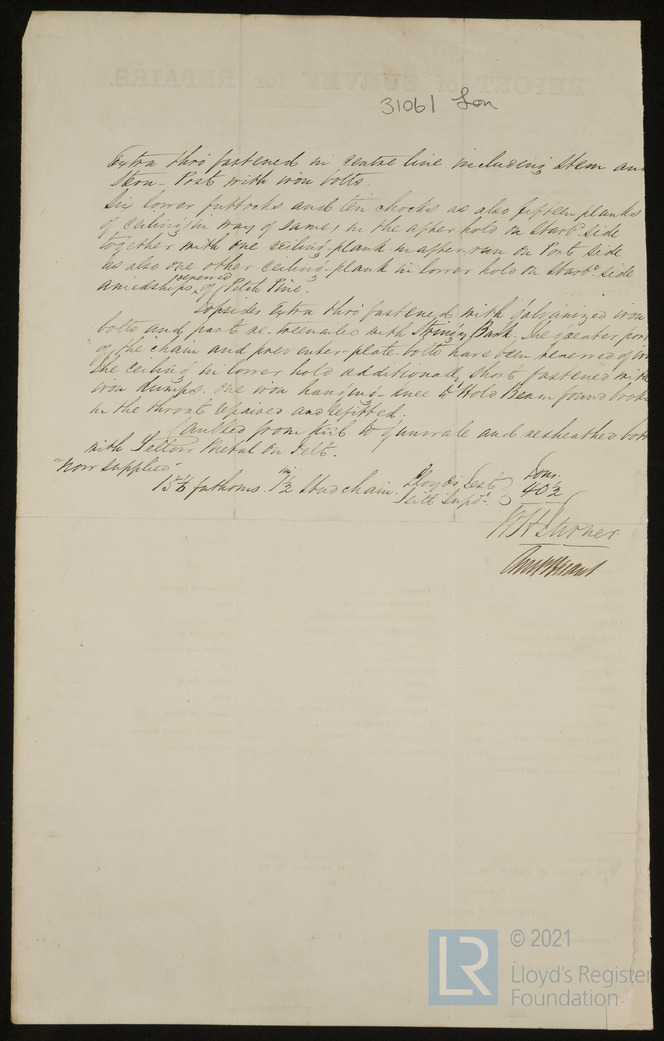 31061 Lon
Extra thro' fastened in centre line including Stem an
Stern-Post with iron bolts.
Six lower futtocks and ten chocks as also fifteen planks
of ceiling in way of same, in the after hold on Starbd. side
together with one ceiling-plank in after run on Port side
as also one other ceiling-plank in lower hold on Starbd. side
amidships, renewed of Pitch Pine.
Topsides Extra thro' fastened with Galvanized iron
bolts and part re-treenailed with Stringy Bark. The greater por
of the chain and preventer-plate-bolts have been renewed of
The Ceiling in lower hold additionally short fastened with
iron dumps. One iron hanging-knee to Hold Beam found brok
in the throat repaired and refitted.
Caulked from Keel to gunwale and resheathed
with Yellow Metal on Felt.
"Now supplied"
15 fathoms 1½ in Stud chain. Lloyd's Test Tons
Supd. 40½
© 2021
Lloyd's Register
Foundation
LR